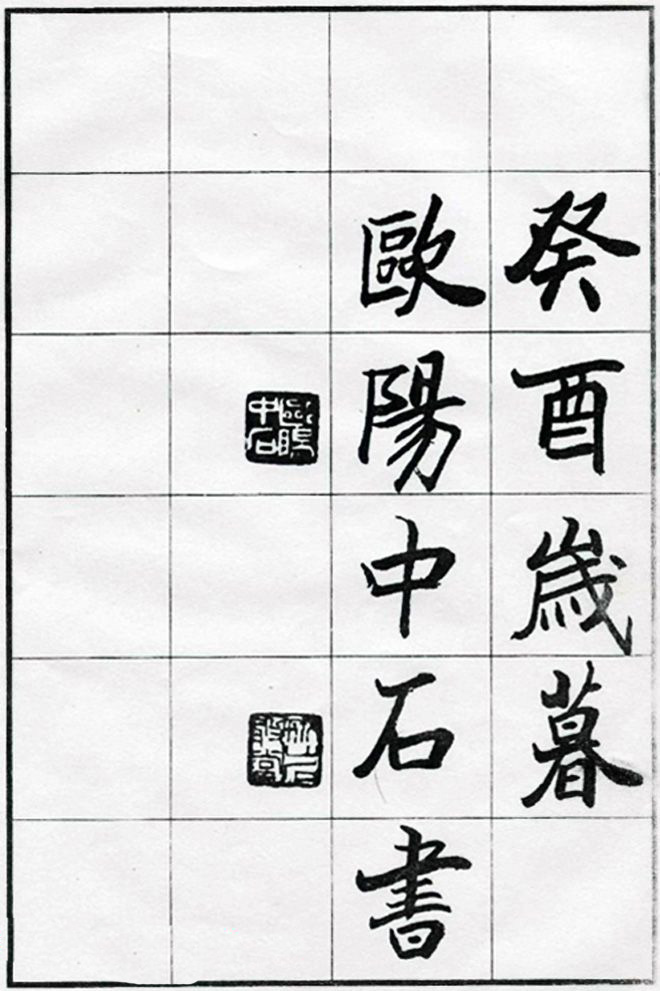 癸酉歲暮
歐陽中石書
歐陽中石